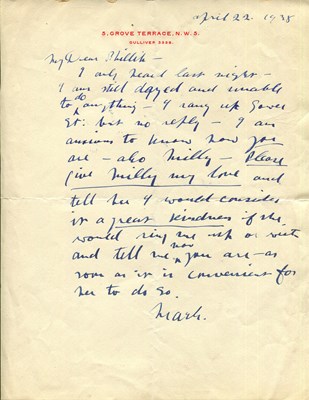 april 22. 1938
5, GROVE TERRACE, N.W.5.
GULLIVER
My Dear
I only heard last night –
I am still dazed and unable
to do anything – I rang up Gower
St: but no reply – I am
anxious to know how you
are – also Milly – Please
give Milly my love and
tell her I would consider
it a great kindness if she
would ring me up or write
and tell me how you are – as
soon as it is convenient for
her to do so.
Mark.